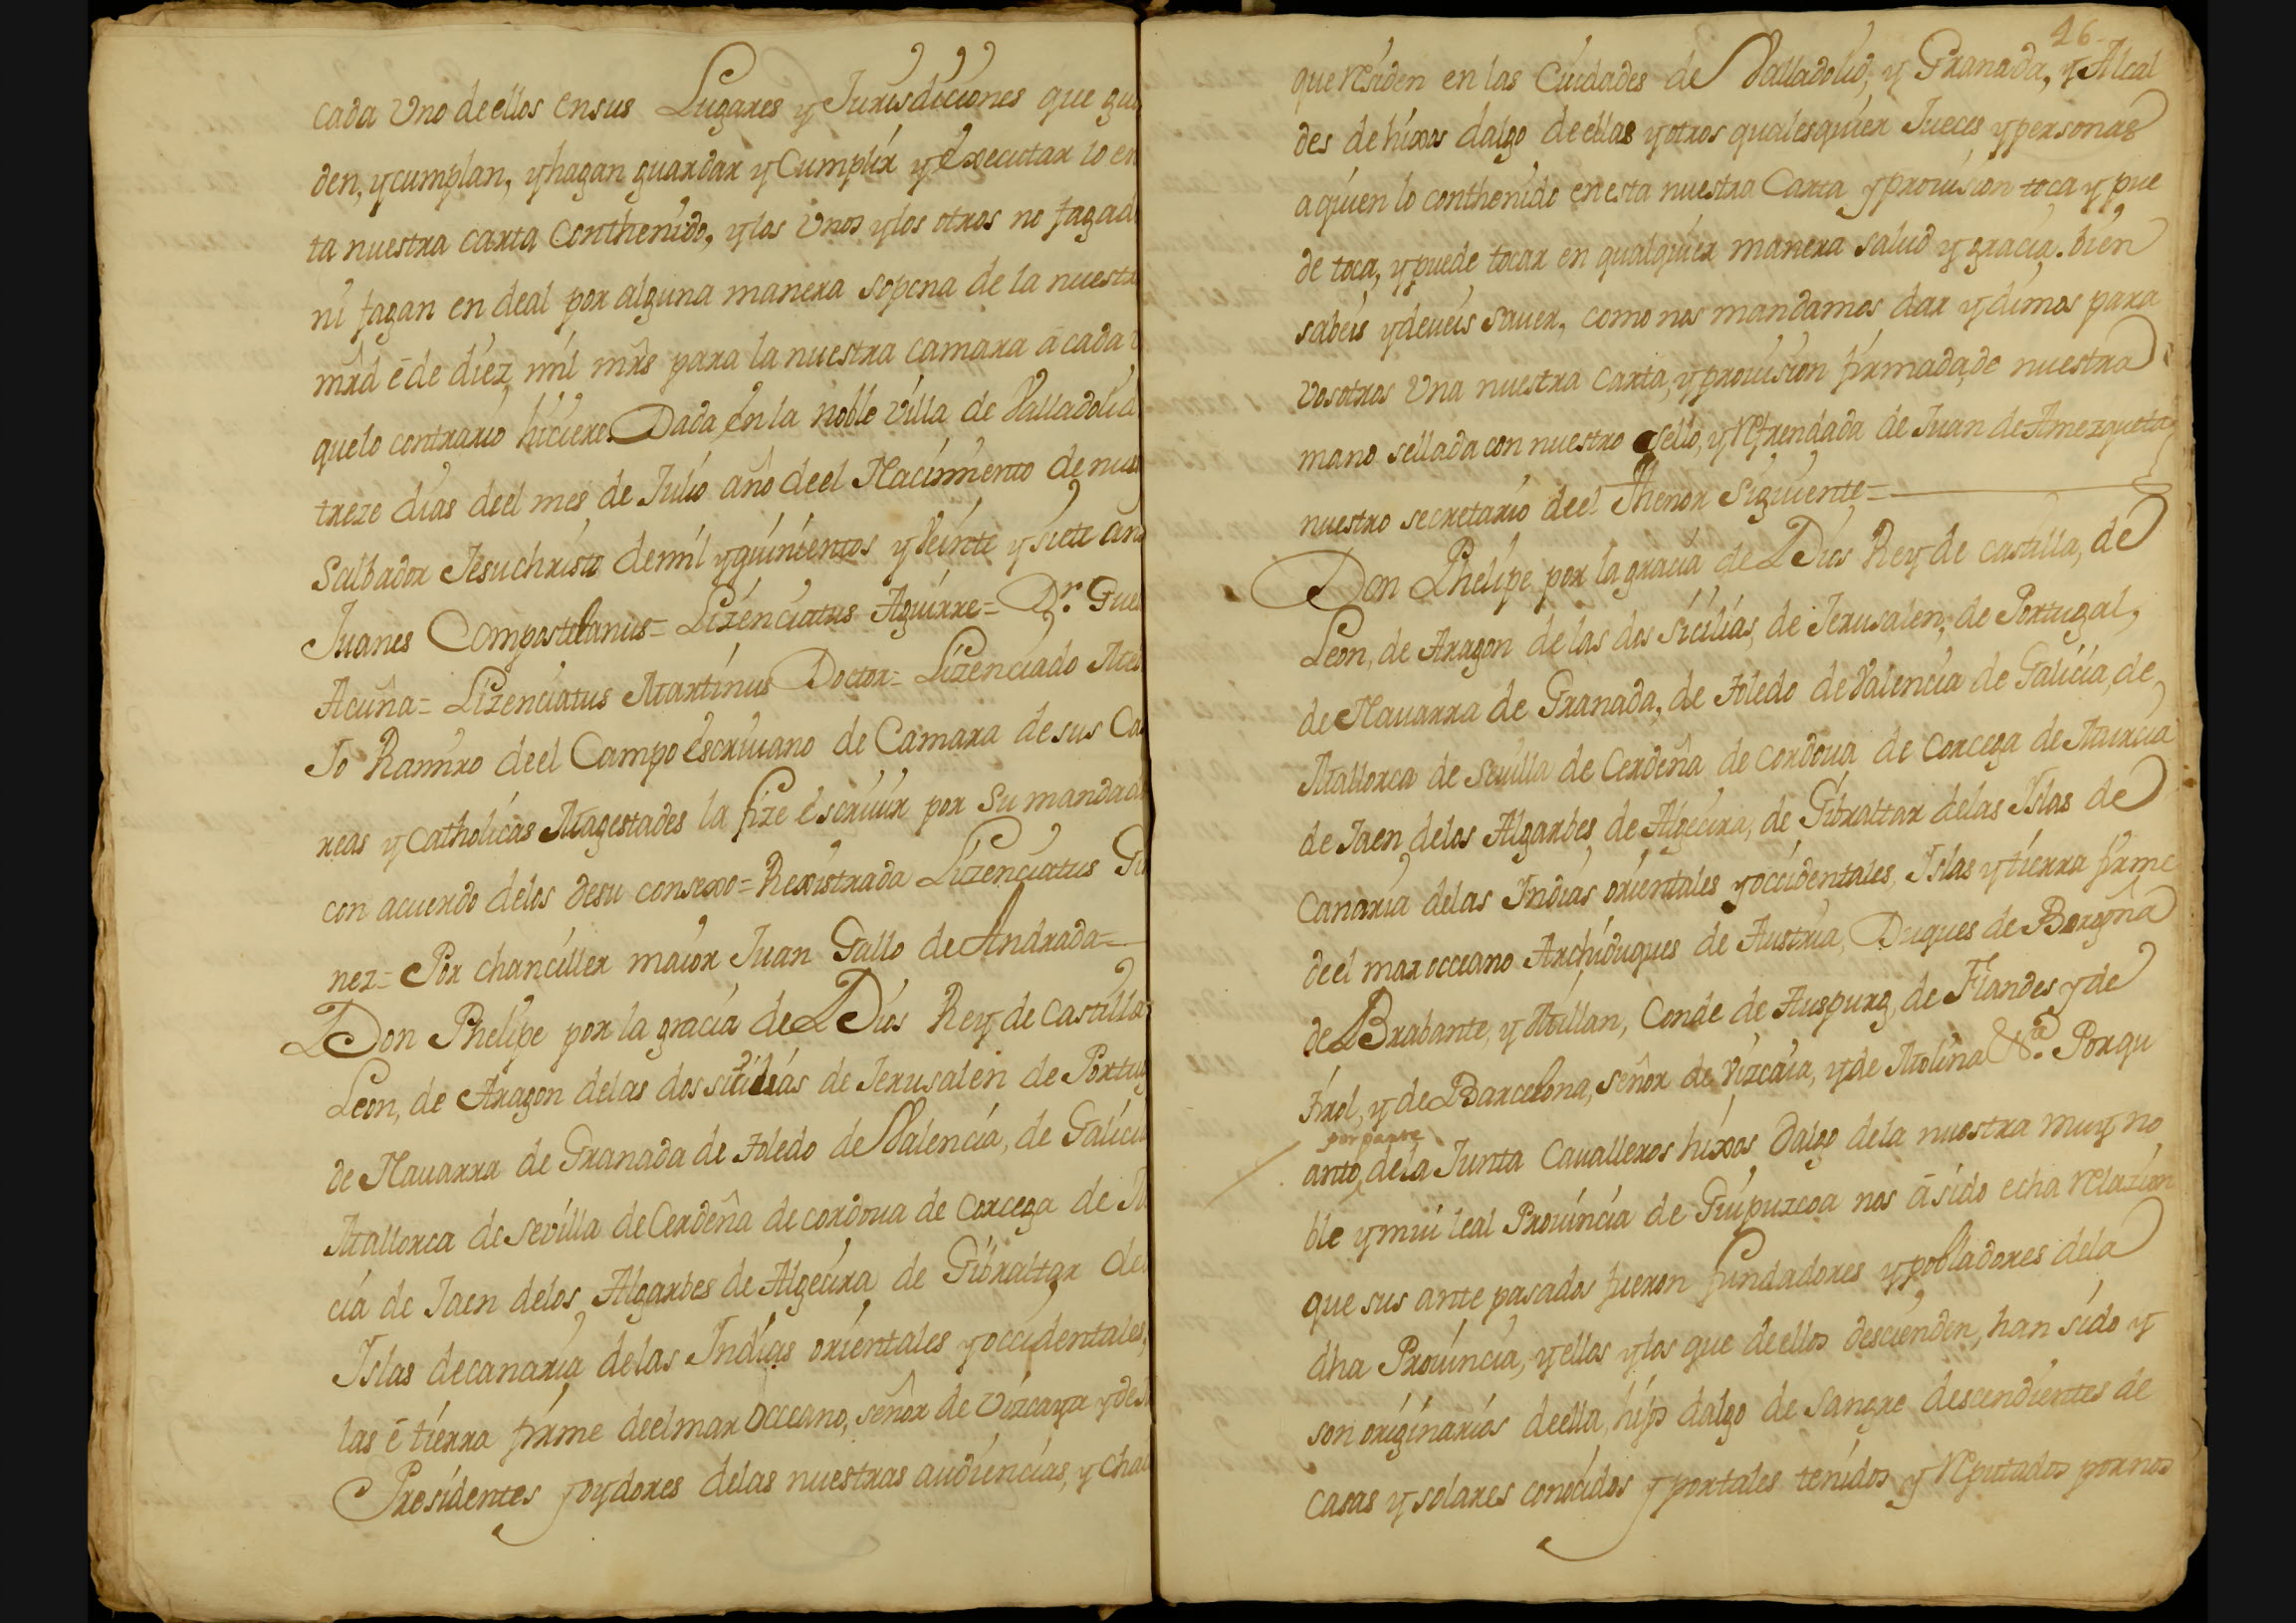 cada Uno de ellos en sus Lugares y Jurisdiciones que gua
den, y cumplan, y hagan guardar y Cumplir y executar lo en
ta nuestra carta Conthenido, y los Unos y los otros no fagad
ni fagan en deal por alguna manera sopena de la nuestr
mrd ē de diez mil mrs para la nuestra camara ā cada
que lo contrario hiciere. Dada en la noble Villa de Valladolid
treze dias de el mes de Julio año de el Nacimiento de nu
Salbador Jesuchristo de mil y quinientos y Veinte y siete añ
Juanes Compostelanus = Lizenciatus Aguirre = Dr. Gue
Acuña = Lizenciatus Martinus Doctor = Lizenciado Me
Jo Ramiro de el Campo escriuano de Camara de sus Ca
reas y Catholicas Magestades la fize escriuir por su mandad
con acuerdo de los de su consexo = Rexistrada Lizenciatus Gi
nez = Por chanciller maior Juan Gallo de Andrada =
Don Phelipe por la gracia de Dios Rey de Castilla
Leon, de Aragon de las dos sicilias de Jerusalen de Portug
de Nauarra de Granada de Toledo de Valencia, de Galici
Mallorca de sevilla de Cerdeña de cordoua de Corcega de M
cia de Jaen de los Algarbes de Algecira de Gibraltar de
Islas de canaria de las Indias orientales y occidentales,
las ē tierra firme de el mar Occeano, señor de Vizcaya y de
Presidentes y oydores de las nuestras audiencias, y cha
26
que residen en las Ciudades de Valladolid, y Granada, y Alcal
des de hixos dalgo de ellas y otros qualesquier Jueces y personas
a quien lo conthenido en esta nuestra Carta y prouision toca y pue
de toca, y puede tocar en qualquier manera salud y gracia. bien
sabeis y deueis sauer, como nos mandamos dar y dimos para
Vosotros Una nuestra Carta, y prouision firmada de nuestra
mano sellada con nuestro sello, y refrendada de Juan de Amezqueta
nuestro secretario de el Thenor Siguiente =
Don Phelipe por la gracia de Dios Rey de castilla, de
Leon, de Aragon de las dos sicilias, de Jerusalen, de Portugal,
de Nauarra de Granada, de Toledo de Valencia de Galicia, de
Mallorca de Seuilla de Cerdeña de Cordoua de Corcega de Murcia
de Jaen de los Algarbes de Algecira, de Gibraltar de las Islas de
Canaria de las Indias orientales y occidentales, Islas y tierra firme
de el mar occeano Archiduques de Austria, Duques de Borgoña
de Brabante, y Millan, Conde de Auspurg, de Flandes y de
Tirol, y de Barcelona, señor de Vizcaia, y de Molina &a. Porqu
por parte
anto de la Junta Caualleros hixos Dalgo de la nuestra muy no
ble y mui leal Prouincia de Guipuzcoa nos ā sido echa relazion
que sus ante pasados fueron fundadores y pobladores de la
dha Prouincia, y ellos y los que de ellos descienden, han sido y
son originarios de ella, hijos dalgo de Sangre descendientes de
casas y solares conocidos y por tales tenidos y reputados por nos